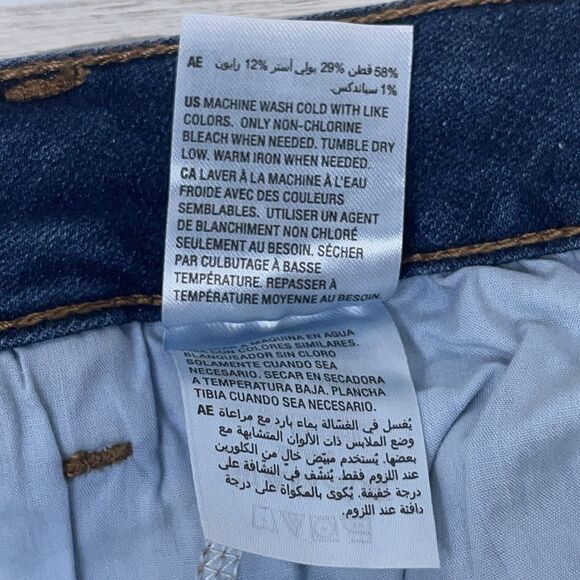 AE 58% قطن 29% بولي أستر 12% رايون
1% سباندكس.
US MACHINE WASH COLD WITH LIKE
COLORS. ONLY NON-CHLORINE
BLEACH WHEN NEEDED. TUMBLE DRY
LOW. WARM IRON WHEN NEEDED.
CA LAVER À LA MACHINE À L'EAU
FROIDE AVEC DES COULEURS
SEMBLABLES. UTILISER UN AGENT
DE BLANCHIMENT NON CHLORÉ
SEULEMENT AU BESOIN. SÉCHER
PAR CULBUTAGE À BASSE
TEMPÉRATURE. REPASSER À
TEMPÉRATURE MOYENNE AU BESOIN.
MAQUINA EN AGUA
CON COLORES SIMILARES.
BLANQUEADOR SIN CLORO
SOLAMENTE CUANDO SEA
NECESARIO. SECAR EN SECADORA
A TEMPERATURA BAJA. PLANCHA
TIBIA CUANDO SEA NECESARIO.
AE يُغسل في الغسّالة بماء بارد مع مراعاة
وضع الملابس ذات الألوان المتشابهة مع
بعضها. يُستخدم مبيّض خالٍ من الكلورين
عند اللزوم فقط. يُنشّف في النشّافة على
درجة خفيفة. يُكوى بالمكواة على درجة
دافئة عند اللزوم.